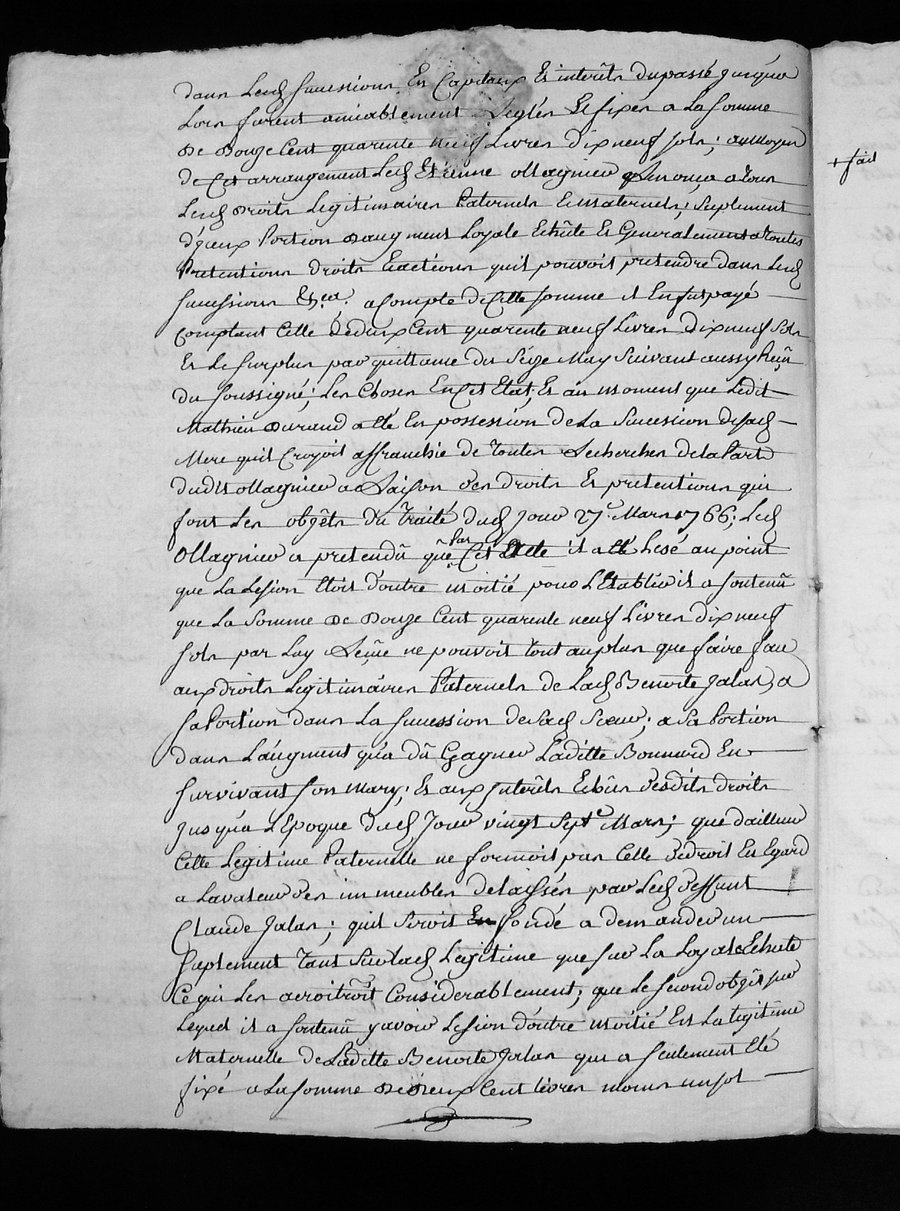 dans Lesd. sucessions, En Capitaux Et interêts dupassé jusqu'a
Lors furent amiablement Réglés Et fixés a La somme
De Douze Cent quarente neuf Livres dixneuf sols; au Moyen
de Cet arrangement Led. Etienne ollagnier Renonça a tous
Lesd. Droits Legitimaires Paternels Et maternels; suplement
d'yceux Portion D'augment Loyale Echûte Et Generalement a toutes
Pretentions droits Et actions qu'il pouvoit pretendre dans Lesd.
sucessions Et.ca. a Compte de Cette somme il En fut payé
comptant Celle De deux Cent quarente neuf Livres Dixneuf sols
Et Le surplus par quittance du Seize May suivant aussy Reçû
du soussigné; Les Choses En Cet Etat, Et au moment que Ledit
Mathieu Durand a Eté En possession de La Sucession de sad.
Mere qu'il Croyoit affranchie de toutes Recherches de la Part
dudit ollagnier a Raison des droits Et pretentions qui
font Les objêts du traité dud. Jour 27.e Mars 1766; Led.
Ollagnier a pretendû que Par Cet Acte il a Eté Lesé au point
que La Lesion Etoit d'outre moitié pour L'Etablir il a soutenû
que La Somme De Douze Cent quarente neuf Livres dixneuf
sols par Luy Reçüe ne pouvoit tout au plus que faire face
aux droits Legitimaires Paternels de Lad. Benoite Jalas, a
sa Portion dans La sucession de Sad. Soeur; a sa Portion
dans L'augment qu'a dû Gagner Laditte Bonnard En
survivant son mary; Et aux Interêts Echûs desdits droits
jusqu'a L'Epoque dud. Jour vingt Sept.e Mars; que d'ailleur
Cette Legitime Paternelle ne formoit pas Celle De droit En Egard
a La valeur des immeubles delaissés par Led. deffunt
Claude Jalas; qu'il Seroit En fondé a demander un
suplement tant Sur Lad. Legitime que sur La Loyale Echute
Ce qui Les acroitroit Considerablement; que Le second objêt sur
Lequel il a soutenû y avoir Lesion d'outre moitié Est La Legitime
Maternelle de Laditte Benoite Jalas qui a seulement Eté
fixé a La somme De deux Cent livres moins un sol
+ fait